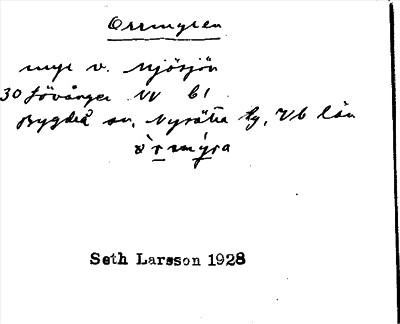 Orrmyren
myr v. Mjösjön
30 Lövånger NV b1
Bygdeå sn, Nysätra tg, Vb län
òrmýra
Seth Larsson 1928